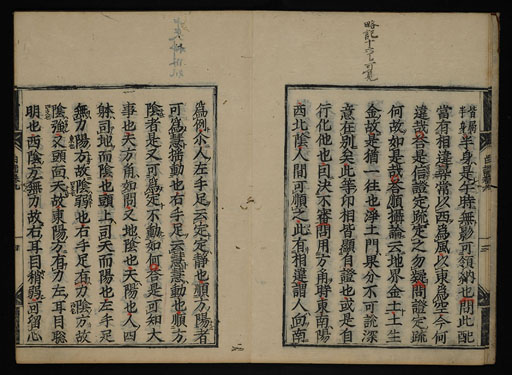 半身是午時無影可領納也問此配
當有相違當以西為風以東為空今何
違哉答是信證定疏定之勿疑問證定疏
何故如是哉答願攝論云地界金土土生
金故是猶一往也淨土門果分不可説深
意在別矣此華印相皆顯自證也或是自
行化他也自决不審問用方角時東南陽
西北陰人間可順之此有相違謂人向南
為例小人左手足云定定靜也順方陽者
可為慧猶動也右手足云慧慧動也順方
陰者是又可為定不動如何答是可知大
事也天方角如問又地陰也天陽也人四
躰司地而陰也頭上司天而陽也左手足
無力陽方故陰弱也右手足有力陰方故
陰強又頭面天故東陽方有力左耳目聡
明也西陰方無力故右耳目稍弱可留心